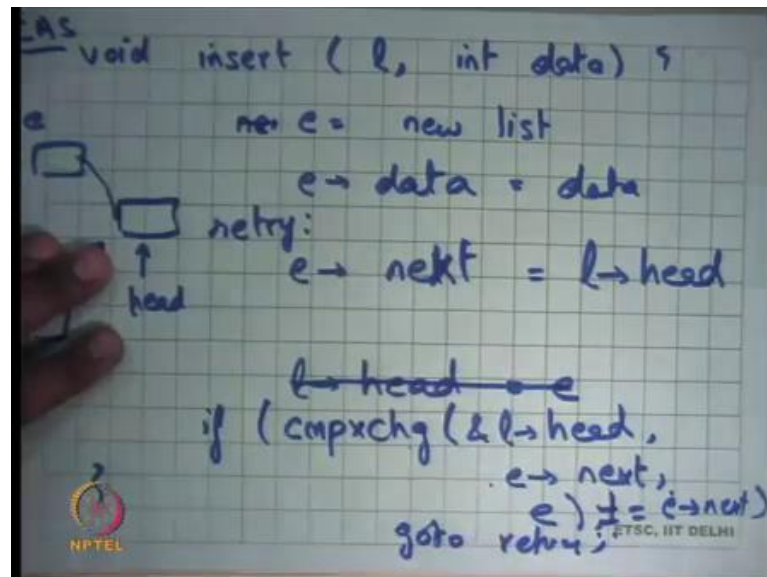 CAS
void insert ( l, int data) {
e
e = new list
e → data = data
retry:
e → next = l → head
head
l → head = e
if ( cmpxchg ( & l → head,
e → next,
e ) != e → next)
goto retry;
NPTEL
ETSC, IIT DELHI